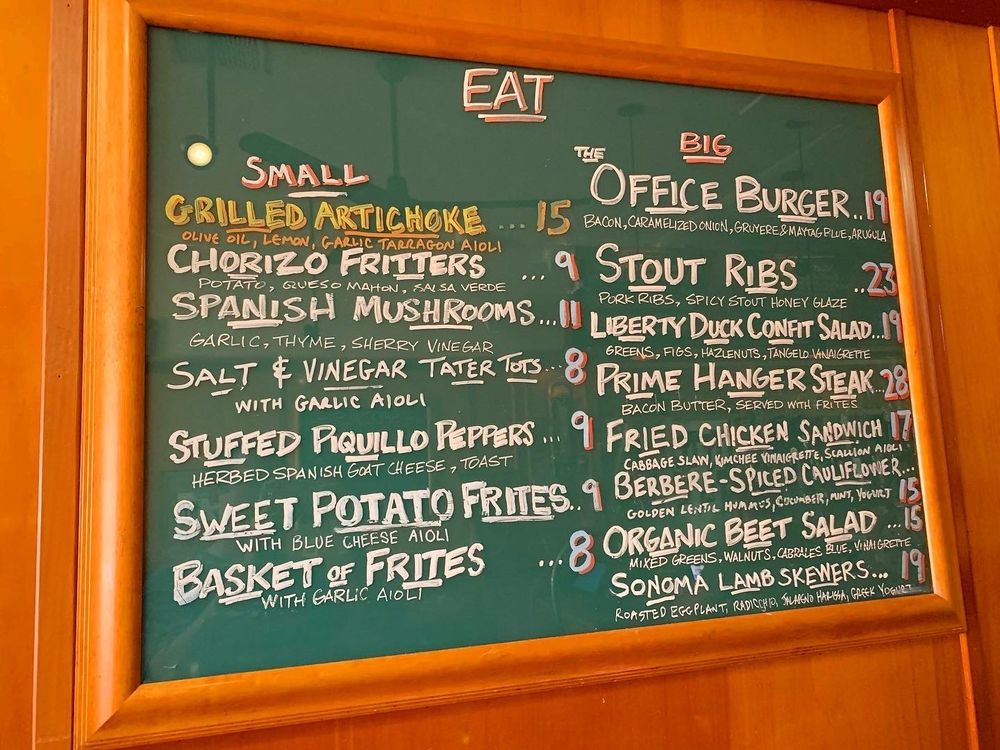 EAT
SMALL
GRILLED ARTICHOKE ... 15
OLIVE OIL, LEMON, GARLIC TARRAGON AIOLI
CHORIZO FRITTERS ... 9
POTATO, QUESO MAHON, SALSA VERDE
SPANISH MUSHROOMS... 11
GARLIC, THYME, SHERRY VINEGAR
SALT & VINEGAR TATER TOTS... 8
WITH GARLIC AIOLI
STUFFED PIQUILLO PEPPERS ... 9
HERBED SPANISH GOAT CHEESE, TOAST
SWEET POTATO FRITES.. 9
WITH BLUE CHEESE AIOLI
BASKET OF FRITES ... 8
WITH GARLIC AIOLI
BIG
THE OFFICE BURGER.. 19
BACON, CARAMELIZED ONION, GRUYERE & MAYTAG BLUE, ARUGULA
STOUT RIBS .. 23
PORK RIBS, SPICY STOUT HONEY GLAZE
LIBERTY DUCK CONFIT SALAD... 19
GREENS, FIGS, HAZLENUTS, TANGELO VINAIGRETTE
PRIME HANGER STEAK.. 28
BACON BUTTER, SERVED WITH FRITES
FRIED CHICKEN SANDWICH 17
CABBAGE SLAW, KIMCHEE VINAIGRETTE, SCALLION AIOLI
BERBERE-SPICED CAULIFLOWER... 15
GOLDEN LENTIL HUMMUS, CUCUMBER, MINT, YOGURT
ORGANIC BEET SALAD ... 15
MIXED GREENS, WALNUTS, CABRALES BLUE, VINAIGRETTE
SONOMA LAMB SKEWERS... 19
ROASTED EGGPLANT, RADICCHIO, JALAPENO HARISSA, GREEK YOGURT